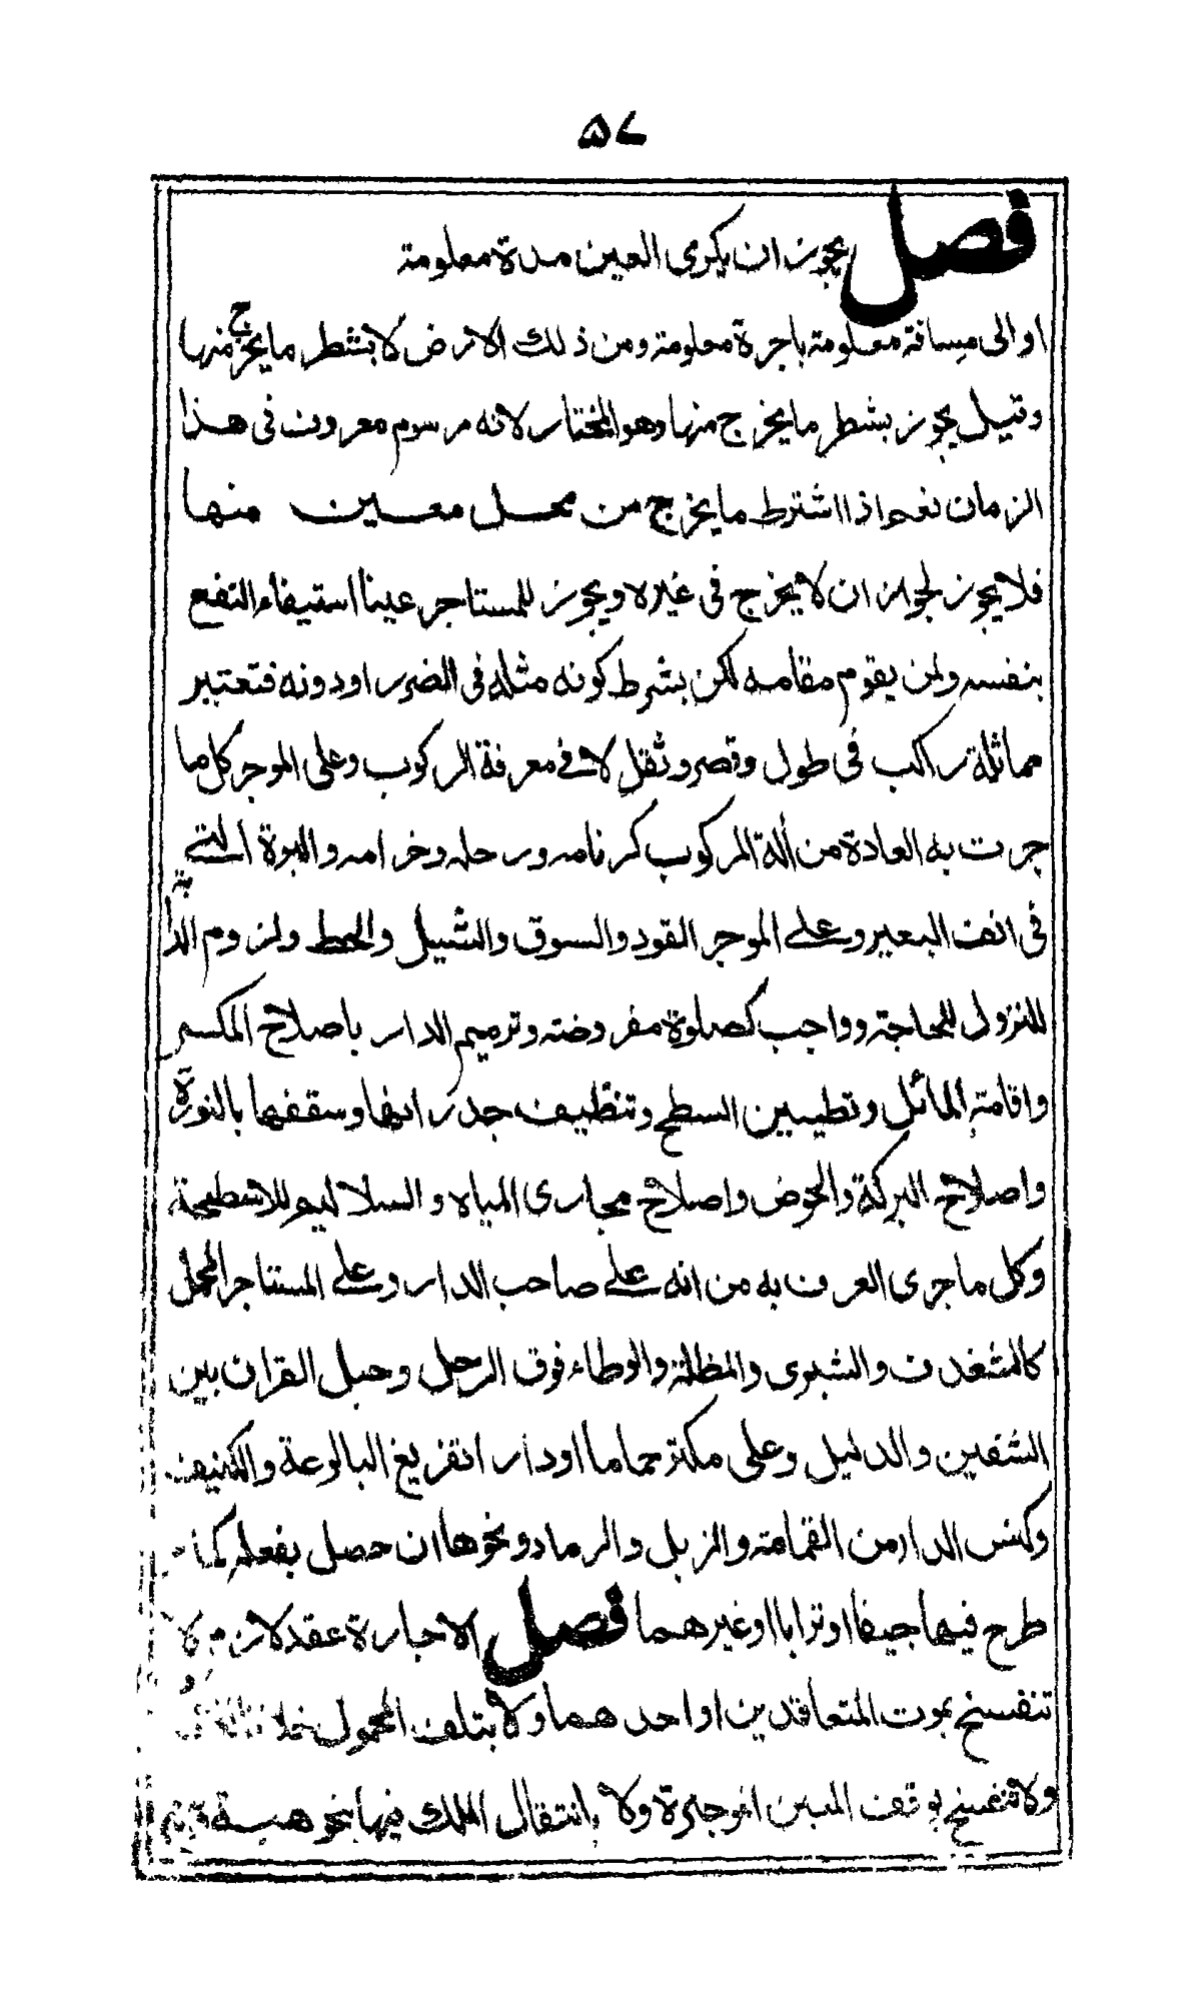 ٥٧
فصل يجوز ان يكرى العين مدة معلومة
او الى مسافة معلومة باجرة معلومة ومن ذلك الارض لا بشطر ما يخرج منها
وقيل يجوز بشطر ما يخرج منها وهو المختار لانه مرسوم معروف فى هذا
الزمان نعم اذا اشترط ما يخرج من محل معين منها
فلا يجوز لجواز ان لا يخرج فى غيره ويجوز للمستاجر عينا استيفاء النفع
بنفسه ولمن يقوم مقامه لكن بشرط كونه مثله فى الضرر او دونه فتعتبر
مماثلة راكب فى طول وقصر وثقل لا فے معرفة الركوب وعلى الموجر كل ما
جرت به العادة من ألة المركوب كزمامه ورحله وخزامه والبرة التے
فى انف البعير وعلے الموجر القود والسوق والشيل والحط ولزوم الدابة
للنزول للحاجة وواجب كصلوة مفروضة وترميم الدار باصلاح المكسر
واقامة المائل وتطيين السطح وتنظيف جدرانها وسقفها بالنورة
واصلاح البركة والحوض واصلاح مجارى المياه والسلاليم للاسطحة
وكل ماجرى العرف به من انه علے صاحب الدار وعلے المستاجر المحمل
كالشغدف والشبرى والمظلة والوطاء فوق الرحل وحبل القران بين
الشقين والدليل وعلى مكتر حماما او دارا تفريغ البالوعة والكنيف
وكنس الدار من القمامة والزبل والرماد ونحوها ان حصل بفعله كما
طرح فيها جيفا او ترابا او غيرهما فصل الاجارة عقد لازم لا
تنفسخ بموت المتعاقدين او احدهما ولا بتلف المحمول
ولا تنفسخ بوقف العين الموجرة ولا بانتقال الملك فيها بنحو هبة